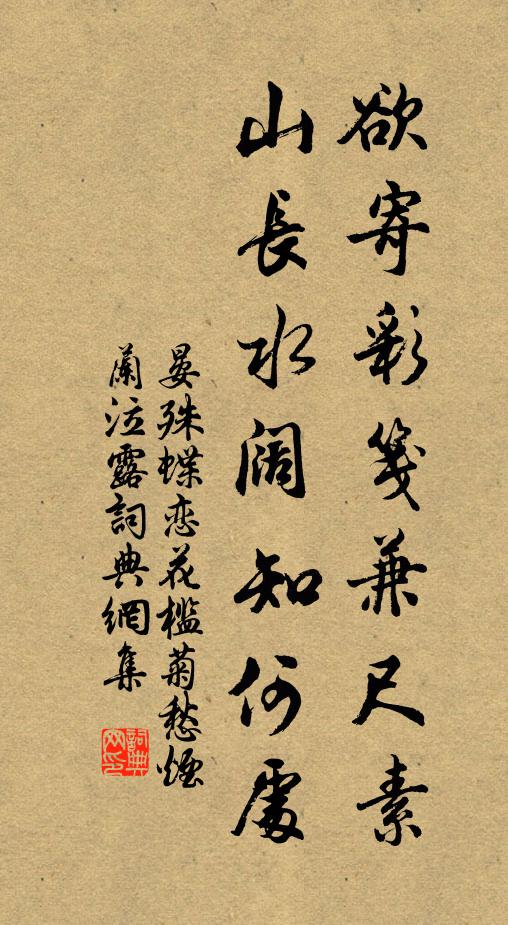 欲寄彩箋兼尺素
山長水闊知何處
晏殊蝶恋花槛菊愁煙
蘭泣露詞典網集
詞典网印